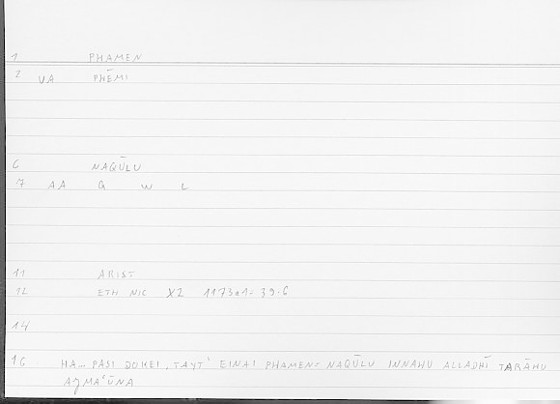 1 PHAMEN
2 VA PHĒMI
6 NAQŪLU
7 AA Q W L
11 ARIST
12 ETH NIC X2 1173a1
14
16 HA PASI DOKEI, TAYT' EINAI PHAMEN NAQŪLU INNAHU ALLADHĪ TARĀHU
AJMAʿŪNA